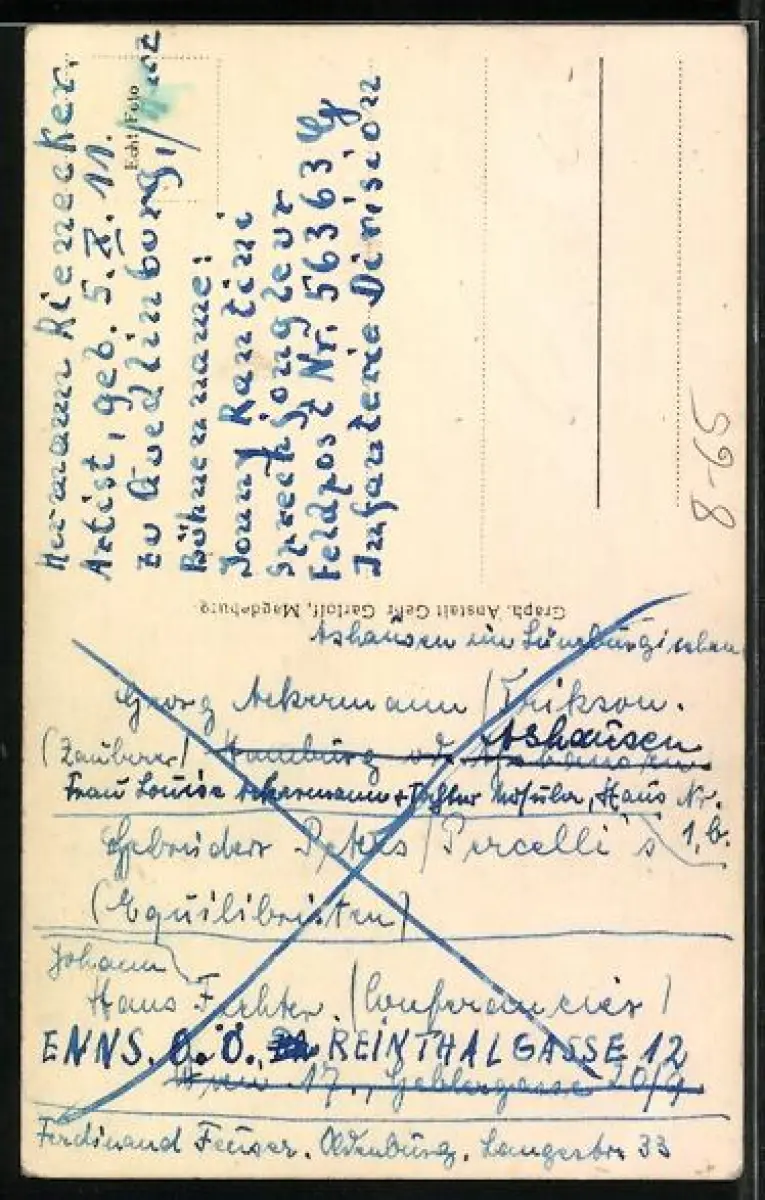 Hermann Rienecker.
Artist, geb. 5. X. 11.
zu Quedlinburg,
Bühnenname:
Jonny Rantini
Sprechjongleur
Feldpost Nr. 56363 G
Infanterie Division
Echt Foto
59-8
Graph. Anstalt Gebr Garloff, Magdeburg.
Ashausen im Lüneburgischen
Georg Ackermann / Erikson.
(Zauberer) Hamburg od. Ashausen
Frau Louise Ackermann + Haus Nr.
1, b.
Gebrüder Peters / Percelli's
(Equilibristen)
Johann
Hans Fechter. (Conferencier)
ENNS. O.Ö., REINTHALGASSE 12
Wien 17., Geblergasse 20/9
Ferdinand Feuser. Oldenburg. Langestr. 33